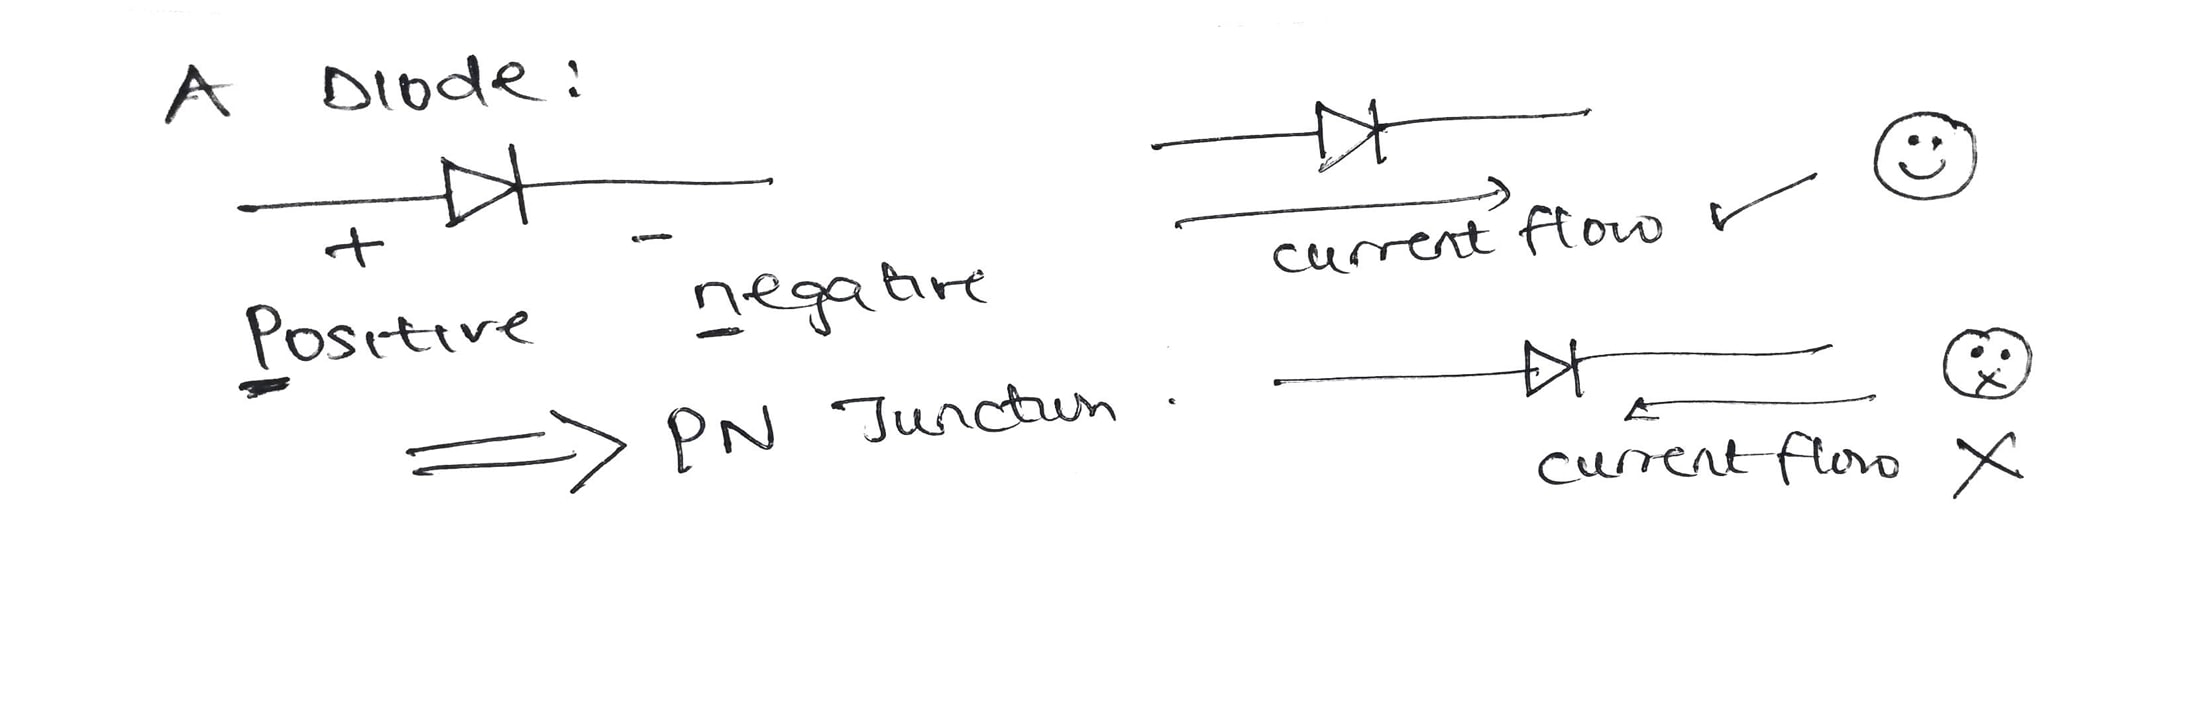 A Diode:
+ -
Positive negative
⇒ PN Junction.
current flow ✓
current flow ✗